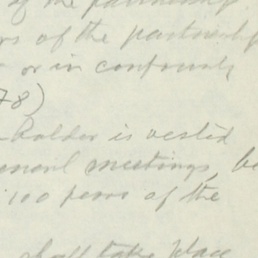 of the partnership
rs of the partnership
or in conformity
78)
holder is vested
meetings, be
100 of the
shall take place